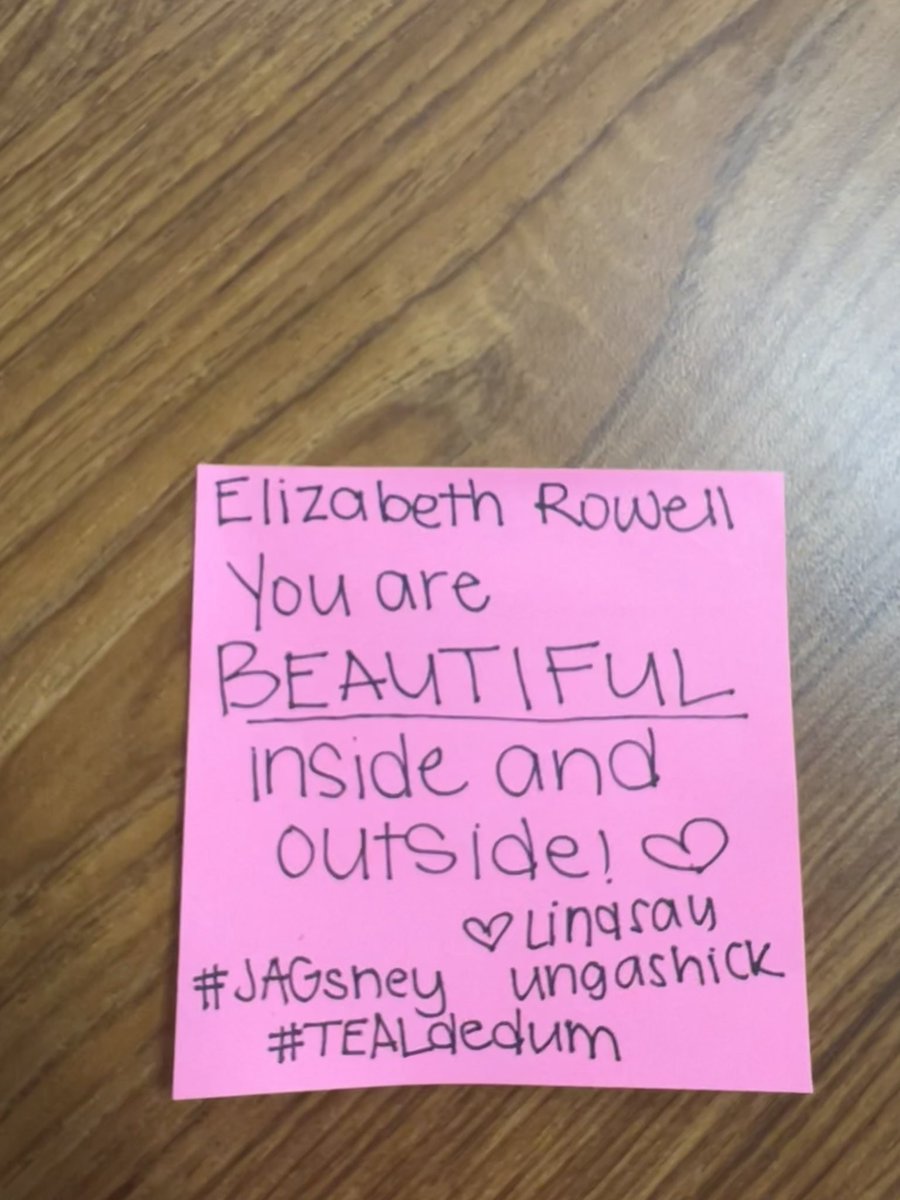 Elizabeth Rowell
You are
BEAUTIFUL
inside and
outside! ♡
♡ Lindsay
#JAGsney ungashick
#TEALdedum